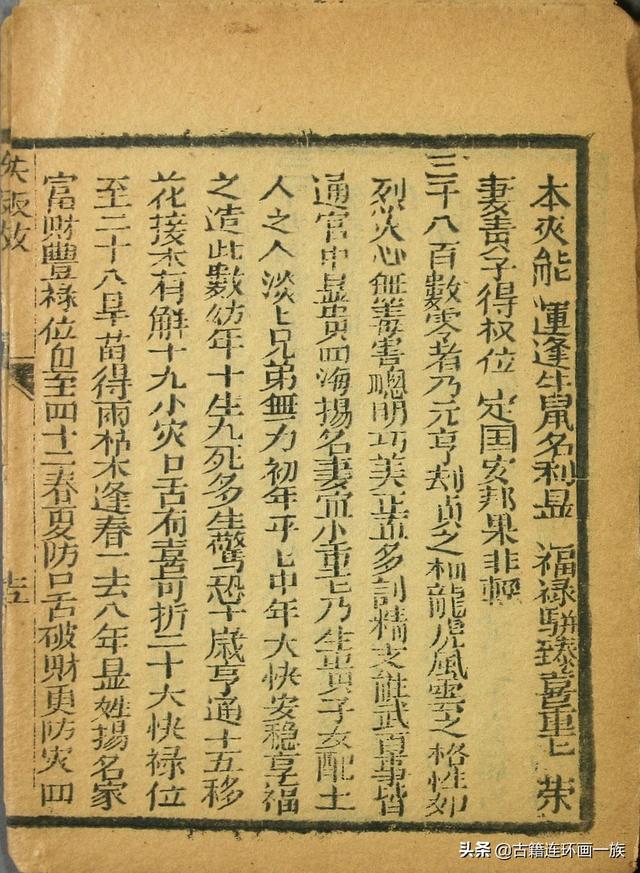 本來能 運逢牛鼠名利显 福禄駢臻喜重七 荣
妻貴子得权位 定国安邦果非輕
三千八百数零者乃元亨利貞之相龍虎風雲之格性如
烈火心無毒害聰明巧美正直多 精文能武百事皆
通官中显貴四海揚名妻宜小重七乃生貴子女配土
人之人淡七兄弟無力初年平七中年大快安穏享福
之造此數幼年十生九死多生驚恐千歲亨通十五移
花接木有解十九小灾口舌有喜可折二十大快禄位
至二十八旱苗得雨枯木逢春一去八年显姓揚名家
富財豐禄位血至四十二春夏防口舌破財更防灾四
头条 @古籍连环画一族